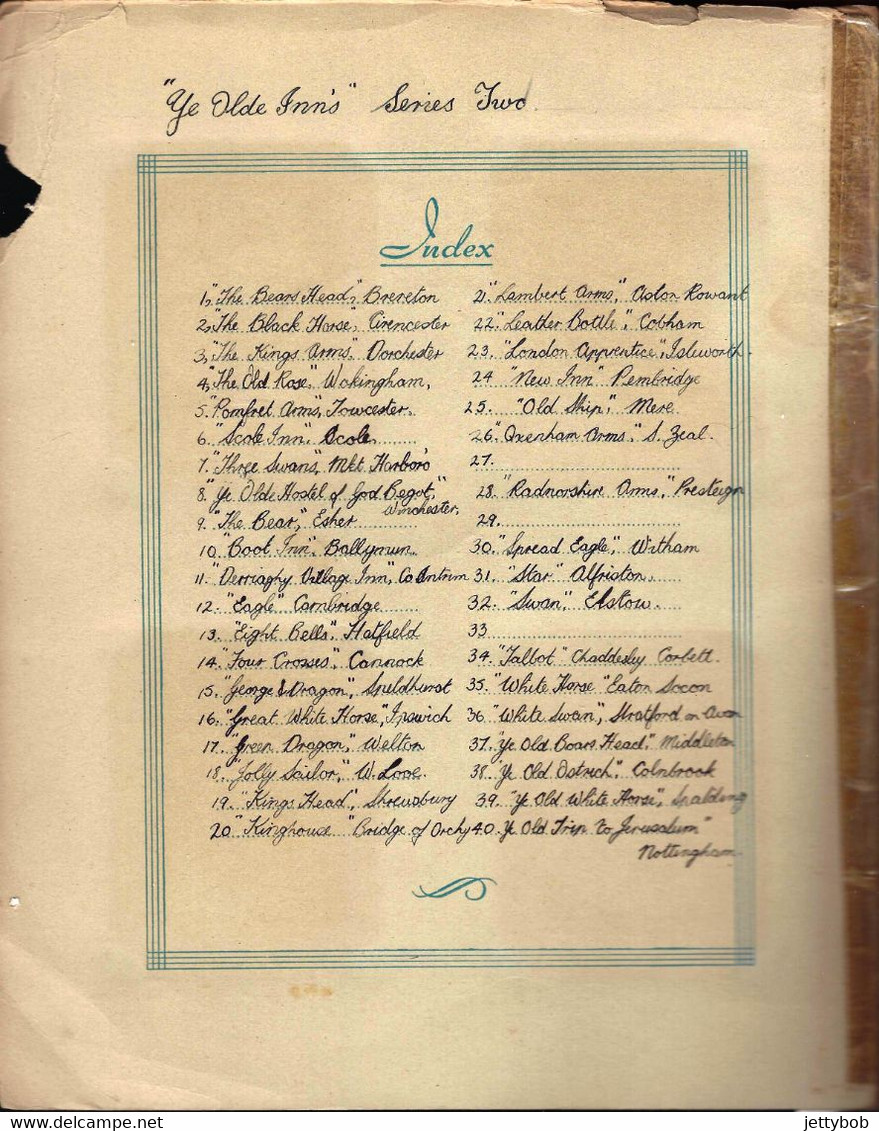 "Ye Olde Inn's" Series Two
Index
1, "The Bears Head," Brereton
2, "The Black Horse", Cirencester
3, "The Kings Arms", Dorchester
4, "The Old Rose", Wokingham,
5. "Pomfret Arms", Towcester.
6. "Scole Inn". Scole,
7. "Three Swans", Mkt Harboro
8. "Ye Olde Hostel of God Begot,"
Winchester.
9. "The Bear," Esher
10. "Boot Inn". Ballymun.
11. "Derriaghy Village Inn", Co Antrim
12. "Eagle" Cambridge
13. "Eight Bells", Hatfield
14. "Four Crosses". Cannock
15. "George & Dragon", Speldhurst
16. "Great White Horse", Ipswich
17. "Green Dragon," Welton
18. "Jolly Sailor," W. Looe.
19. "Kings Head", Shrewsbury
20 "Kinghouse" Bridge of Orchy
21. "Lambert Arms," Aston Rowant
22. "Leather Bottle", Cobham
23. "London Apprentice", Isleworth.
24 "New Inn" Pembridge
25. "Old Ship," Mere
26. "Oxenham Arms," S. Zeal.
27.
28. "Radnorshire Arms," Presteign
29.
30. "Spread Eagle", Witham
31. "Star" Alfriston.
32. "Swan", Elstow.
33
34. "Talbot" Chaddesley Corbett.
35. "White Horse" Eaton Socon
36. "White Swan", Stratford on Avon
37. "Ye Old Boars Head," Middleton
38. "Ye Old Ostrich", Colnbrook
39. "Ye Old White Horse", Spalding
40. Ye Old Trip to Jerusalem"
Nottingham.
delcampe.net
jettybob